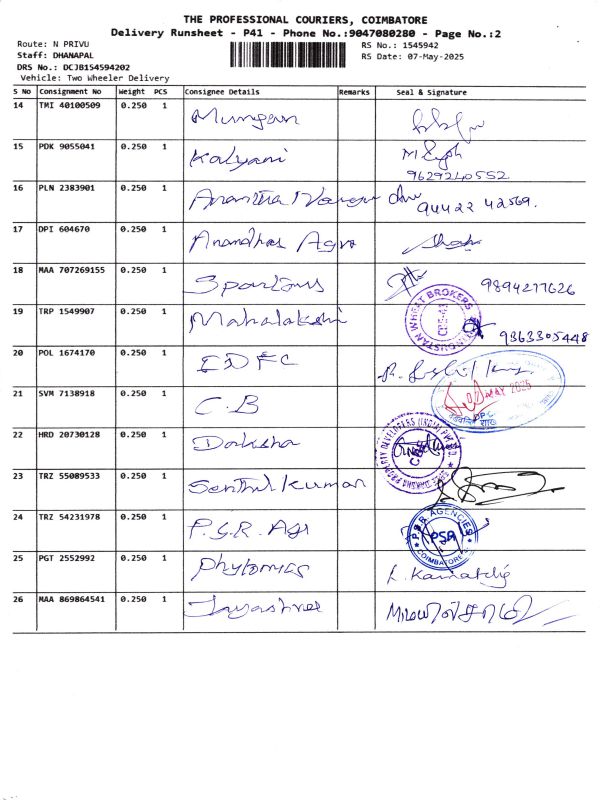 THE PROFESSIONAL COURIERS, COIMBATORE
Delivery Runsheet - P41 - Phone No.:9047080280 - Page No.:2
Route: N PRIVU
RS No.: 1545942
Staff: DHANAPAL
RS Date: 07-May-2025
DRS No.: DCJB154594202
Vehicle: Two Wheeler Delivery
S No Consignment No Weight PCS Consignee Details Remarks Seal & Signature
14 TMI 40100509 0.250 1 Murugan
15 PDK 9055041 0.250 1 Kalyani
9629240552
16 PLN 2383901 0.250 1 Anantha
94422 42569.
17 DPI 604670 0.250 1 Anandhas Agr
18 MAA 707269155 0.250 1 Spartans 9894277626
19 TRP 1549907 0.250 1 Mahalakshi 9363305448
20 POL 1674170 0.250 1 IDFC
21 SVM 7138918 0.250 1 C.B MAY 2025
22 HRD 20730128 0.250 1 Daksha
23 TRZ 55089533 0.250 1 Senthil kumar
24 TRZ 54231978 0.250 1 P.S.R. Agr P.S.R. AGENCIES PSR COIMBATORE
25 PGT 2552992 0.250 1 Phytomics L. Kamatchi
26 MAA 869864541 0.250 1 Jayashree